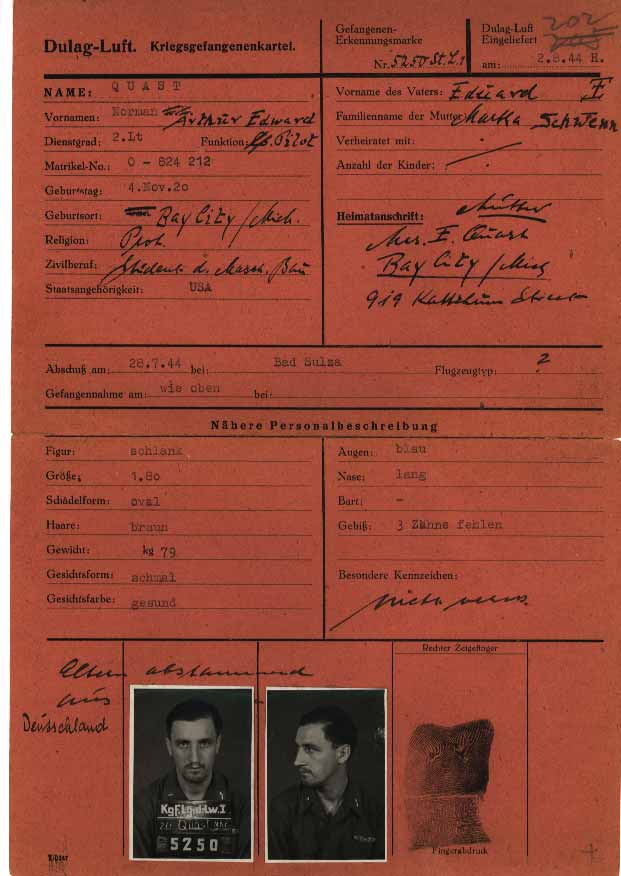 Dulag-Luft. Kriegsgefangenenkartei.
Gefangenen-Erkennungsmarke
Nr. 5250 St.L.1
Dulag-Luft
Eingeliefert
202
am: 2.8.44 H.
NAME: QUAST
Vornamen: Norman Arthur Edward
Dienstgrad: 2.Lt Funktion: Co. Pilot
Matrikel-No.: O - 824 212
Geburtstag: 4.Nov.20
Geburtsort: Bay City / Mich.
Religion: Prot.
Zivilberuf: Student d. Masch. Bau
Staatsangehörigkeit: USA
Vorname des Vaters: Eduard I
Familienname der Mutter: Martha Schwenn
Verheiratet mit: -
Anzahl der Kinder: /
Heimatanschrift: Mutter
Mrs. E. Quast
Bay City / Mich
919 Street
Abschuß am: 28.7.44 bei: Bad Sulza Flugzeugtyp: ?
Gefangennahme am: wie oben bei:
Nähere Personalbeschreibung
Figur: schlank
Größe: 1.80
Schädelform: oval
Haare: braun
Gewicht: kg 79
Gesichtsform: schmal
Gesichtsfarbe: gesund
Augen: blau
Nase: lang
Bart: -
Gebiß: 3 Zähne fehlen
Besondere Kennzeichen:
Rechter Zeigefinger
Eltern abstammend
aus
Deutschland
Kgf.Lg.d.Lw.1
Quast
5250
Fingerabdruck